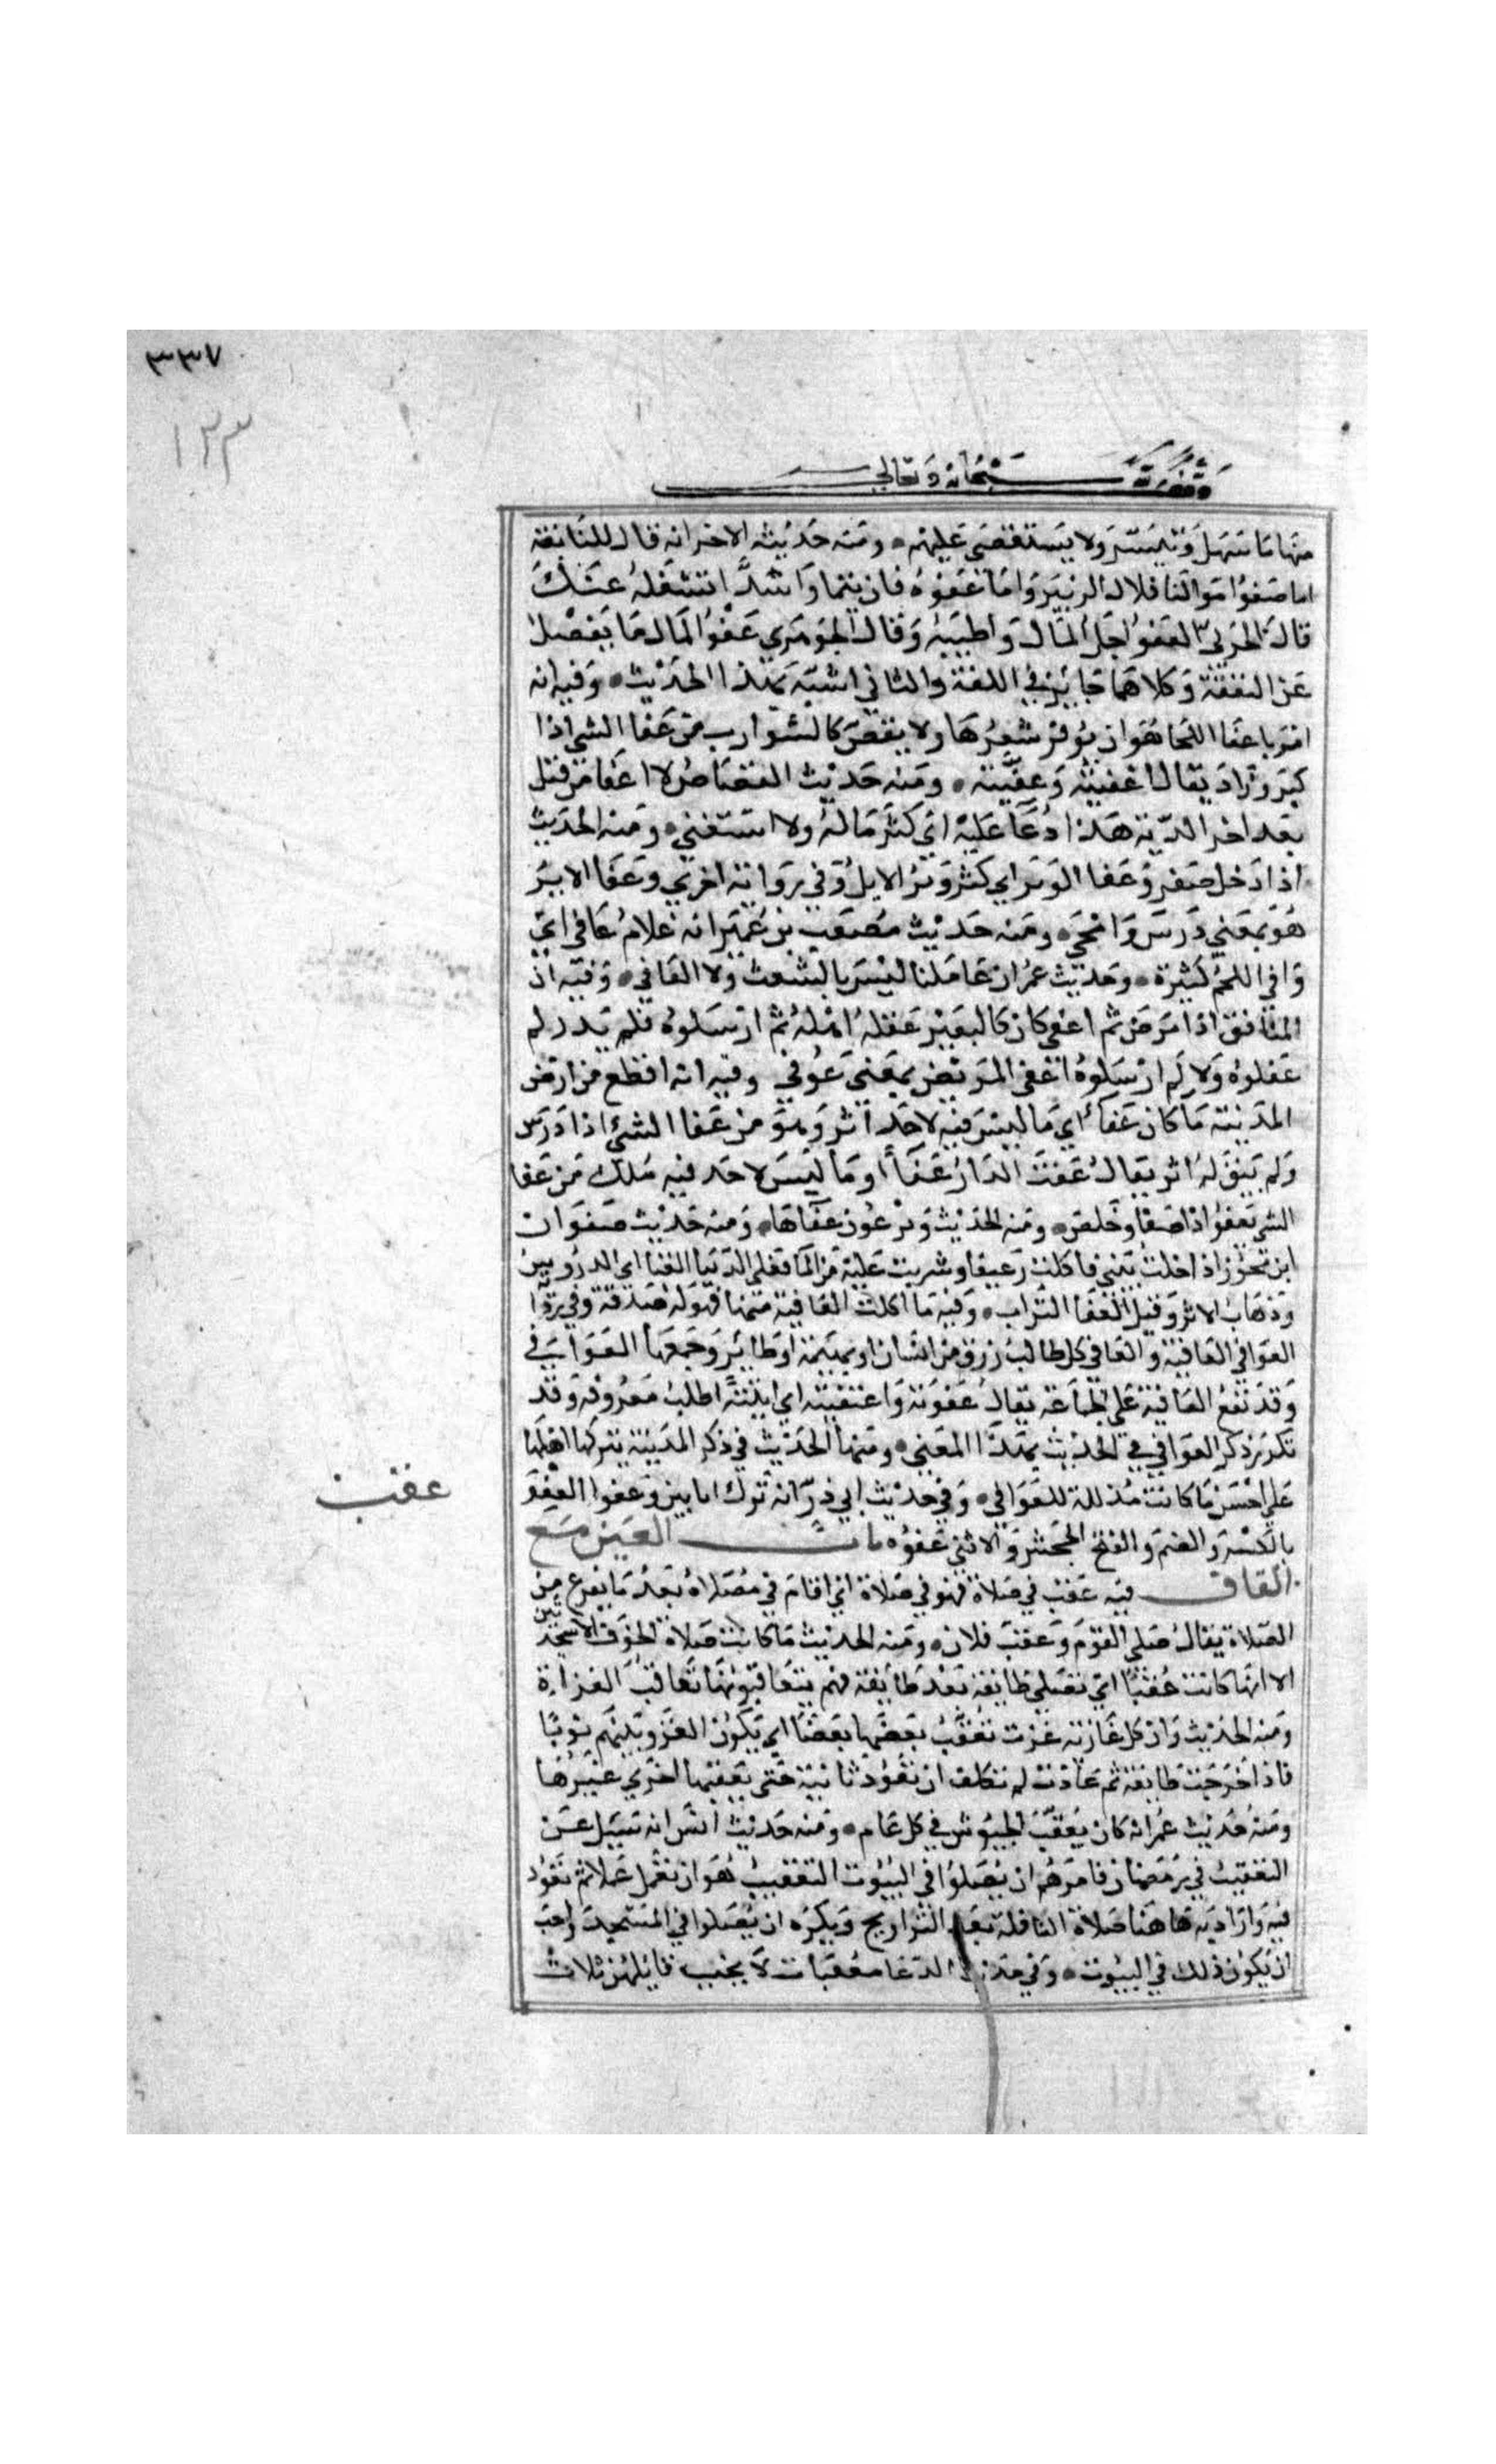 ٣٣٧
١٣٣
وقف لله سبحانه وتعالى
منها ما سهل وتيسر ولا يستقصى عليهم ٠ ومنه حديثه الاخر انه قال للنابغة
اما صفوا موالنا فلال الزبير واما عفوه فان تيما واسدا تشغله عنك
قال الحربى العفو اجل المال واطيبه وقال الجوهري عفو المال ما يفضل
عن النفقة وكلاهما جايز في اللغة والثاني اشبه بهذا الحديث ٠ وفيه انه
امر باعفا اللحا هو ان يوفر شعرها ولا يقص كالشوارب من عفا الشي اذا
كبر وزاد يقال اعفيته وعفيته ٠ ومنه حديث القصاص لا اعفا من قتل
بعد اخذ الدية هذا دعا عليه اي كثر ماله ولا استغني ٠ ومنه الحديث
اذا دخل صفر وعفا الوبر اي كثر وبر الابل وفي رواية اخري وعفا الاثر
هو بمعني درس وامحى ٠ ومنه حديث مصعب بن عمير انه غلام عافي اي
وافي اللحم كثيرة ٠ وحديث عمر ان عاملنا ليس بالشعث ولا العافي ٠ وفيه ان
المنافق اذا مرض ثم اعفي كان كالبعير عقله اهله ثم ارسلوه فلم يدر لم
عقلوه ولا لم ارسلوه اعفى المريض بمعني عوفي وفيه انه اقطع من ارض
المدينة ما كان عفا اي ما ليس فيه لاحد اثر وهو من عفا الشئ اذا درس
ولم يبق له اثر يقال عفت الدار عفاأ او ما ليس لاحد فيه ملك من عفا
الشي يعفو اذا صفا وخلص ٠ ومنه الحديث ويرعون عفاها ٠ ومنه حديث صفوان
ابن محرز اذا دخلت بيتي فاكلت رغيفا وشربت عليه من الما فعلى الدنيا العفا اي الدروس
وذهاب الاثر وقيل العفا التراب ٠ وفيه ما اكلت العافية منها فهو له صدقة وفي رواية
العوافي العافية والعافي كل طالب رزق من انسان او بهيمة او طاير وجمعها العوافي
وقد تقع العافية على الجماعة يقال عفوته واعتفيته اي اتيته اطلب معروفه وقد
تكرر ذكر العوافي في الحديث بهذا المعني ٠ ومنها الحديث في ذكر المدينة يتركها اهلها
على احسن ما كانت مذللة للعوافي ٠ وفي حديث ابي ذر انه ترك اتانين وعفوا العفو
بالكسر والضم والفتح الجحش والانثى عفوه باب العين مع
القاف فيه من عقب في صلاة فهو في صلاة اي اقام في مصلاه بعد ما يفرغ من
الصلاة يقال صلى القوم وعقب فلان ٠ ومنه الحديث ما كانت صلاة الخوف الا سجدتين
الا انها كانت عقبا اي تصلي طايفة بعد طايفة فهم يتعاقبونها تعاقب الغزاة
ومنه الحديث وان كل غازية غزت تعقب بعضها بعضا اي يكون الغزو بينهم نوبا
فاذا خرجت طايفة ثم عادت لم تكلف ان تعود ثانية حتى يعقبها اخري غيرها
ومنه حديث عمر انه كان يعقب الجيوش في كل عام ٠ ومنه حديث انس انه سيل عن
التعقيب في رمضان فامرهم ان يصلوا في البيوت التعقيب هو ان تعمل عملا ثم تعود
فيه واراد به هاهنا صلاة النافلة بعد التراويح ويكره ان يصلوا في المسجد واحب
ان يكون ذلك في البيوت ٠ وفي حديث الدعا معقبات لا يخيب قايلهن ثلاث
عقب